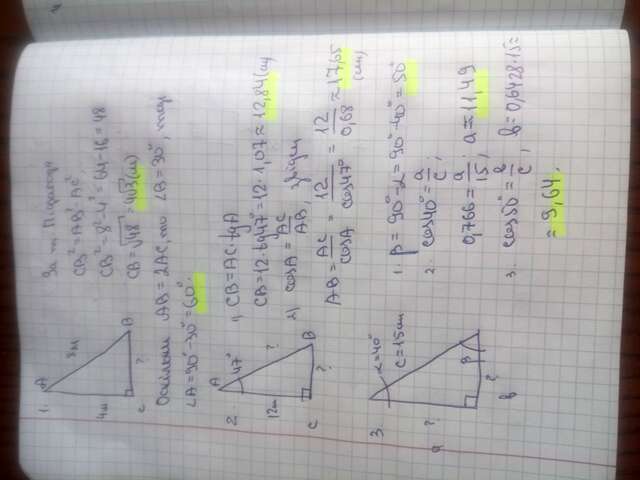 1.
A
8м
4м
B
?
C
За т. Піфагора
CB²=AB²-AC²
CB²=8²-4²=64-16=48
CB=√48=4√3(м)
Оскільки AB=2AC, то ∠B=30°, тоді
∠A=90°-30°=60°.
2
A
47°
?
12м
B
?
C
1) CB=AC·tgA
CB=12·tg47°=12·1,07≈12,84(м)
2) cosA=AC/AB, звідси
AB=AC/cosA=12/cos47°=12/0,68≈17,65
(м)
3
α=40°
c=15см
a
?
β
?
b
1. β=90°-α=90°-40°=50°
2. cos40°=a/c;
0,766=a/15; a≈11,49
3. cos50°=b/c; b=0,6428·15≈
≈9,64.